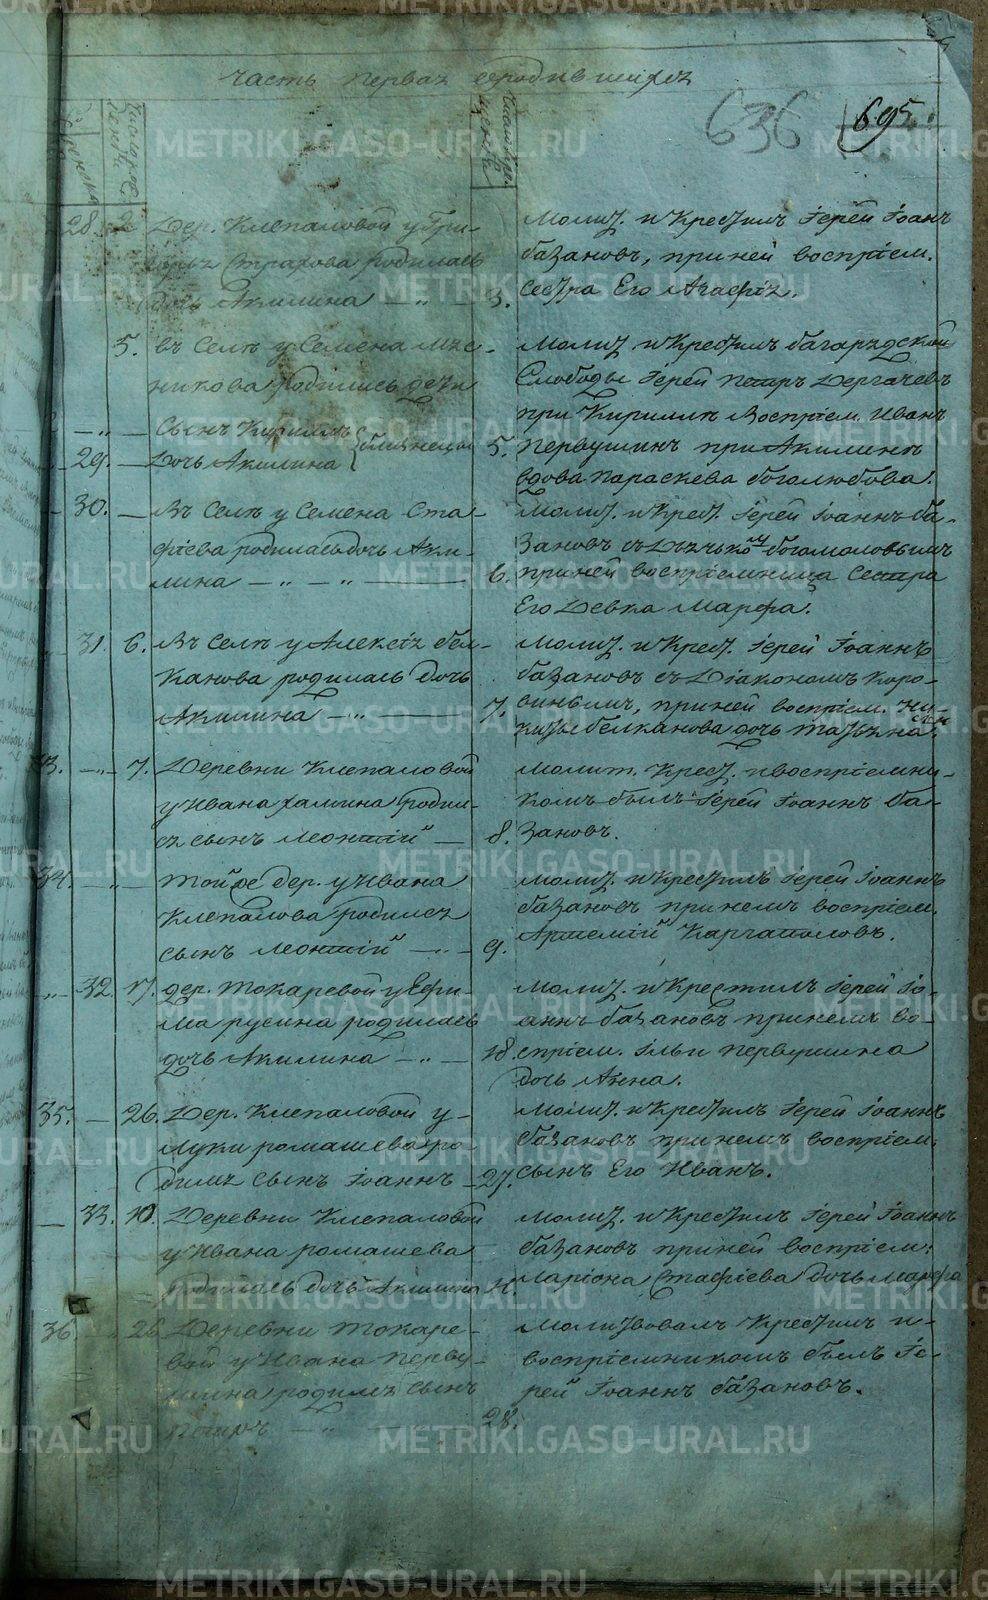 часть первая о родившихся
636
695.
28. 2 Дер. Клепаловой у Гри-
горья Страхова родилась
дочь Акилина — „ — 3.
Молит. и Крестилъ Іерей Іоаннъ
базановъ, при ней воспріем.
сестра Его Агафія.
5. въ Селѣ у Семена Мяс-
никова родились дети
— „ — Сынъ Кириллъ
близнецы
29. — Дочь Акилина 5.
Молит. и Крестилъ багарядской
Слободы Іерей Петръ Дергачевъ
при Кириллѣ Воспріем. Иванъ
Первушинъ при Акилинѣ
вдова Параскева боголюбова.
30. — Въ Селѣ у Семена Ста-
фіева родилась дочь Аки-
лина — „ — „ — 6.
Молит. и Крест. Іерей Іоаннъ ба-
зановъ съ Дьячкомъ богомоловымъ
при ней воспріемница Сестра
Его Девка Марфа.
31. 6. Въ Селѣ у Алексія бел-
канова родилась дочь
Акилина — „ — 7.
Молит. и Крест. Іерей Іоаннъ
базановъ съ Діакономъ Коро-
винымъ, при ней воспріем. Ни-
киты белканова дочь татьяна.
33. — „ — 7. Деревни Клепаловой
у Ивана халина родил-
ся сынъ Леонтій — 8.
Молит. Крест. и воспріемни-
комъ былъ Іерей Іоаннъ ба-
зановъ.
34. — „ — той же дер. у Ивана
Клепалова родился
сынъ Леонтій — „ — 9.
Молит. и Крестилъ Іерей Іоаннъ
базановъ при немъ воспріем.
Артемій Каргаполовъ.
— „ — 32. 17. дер. Токаревой у Ефи-
ма русина родилась
дочь Акилина — „ — 18.
Молит. и Крестилъ Іерей Іо-
аннъ базановъ при немъ во-
спріем. Ильи Первушина
дочь Анна.
35. — 26. Дер. Клепаловой у
Луки ромашева ро-
дился сынъ Іоаннъ — 27.
Молит. и Крестилъ Іерей Іоаннъ
базановъ при немъ воспріем.
сынъ Его Иванъ.
— 33. 10. Деревни Клепаловой
у Ивана ромашева
родилась дочь Акилина 11.
Молит. и Крестилъ Іерей Іоаннъ
базановъ при ней воспріем.
Маріона Стафіева дочь Марфа
36. „ 26 Деревни Токаре-
вой у Ивана Перву-
шина родился сынъ
Петръ — „ — 28.
Молитвовалъ Крестилъ и
воспріемникомъ былъ Іе-
рей Іоаннъ базановъ.